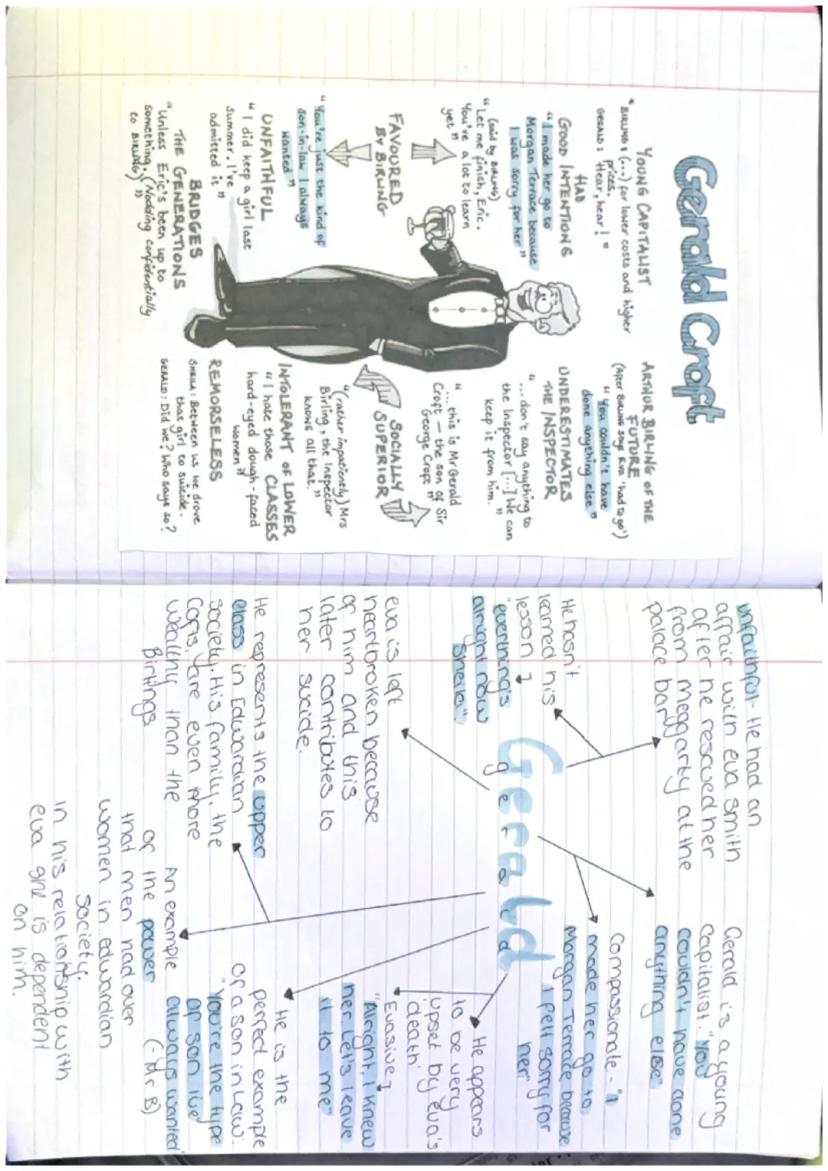 Gerald Croft
YOUNG CAPITALIST
"BIRLING: (...) for lower costs and higher
prices.
GERALD: Hear, hear!"
HAD
GOOD INTENTIONS
"I made her go to
Morgan Terrace because
I was sorry for her"
(said by BIRLING)
"Let me finish, Eric.
You've a lot to learn
yet"
FAVOURED
BY BIRLING
"You're just the kind of
son-in-law I always
wanted"
UNFAITHFUL
"I did keep a girl last
summer. I've
admitted it"
BRIDGES
THE GENERATIONS
"Unless Eric's been up to
something. (Nodding confidentially
to BIRLING)"
ARTHUR BIRLING OF THE
FUTURE
(After BIRLING says Eva 'had to go')
"You couldn't have
done anything else"
UNDERESTIMATES
THE INSPECTOR
"... don't say anything to
the Inspector [...] We can
keep it from him."
"... this is Mr Gerald
Croft – the son of Sir
George Croft"
SOCIALLY
SUPERIOR
"(rather impatiently) Mrs
Birling, the Inspector
knows all that."
INTOLERANT OF LOWER
CLASSES
"I hate those
hard-eyed dough-faced
women"
REMORSELESS
SHEILA: Between us we drove
that girl to suicide.
GERALD: Did we? Who says so?
unfaithful - He had an
affair with eva smith
after he rescued her
from meggarty at the
palace bar
He hasn't
learned his
lesson
"everthing's
alright now
sheila"
eva is left
heartbroken because
of him and this
later contributes to
her suicide.
He represents the upper
class in Edwardian
society. His family, the
Cofts, are even more
wealthy than the
Birlings
Gerald
gerald
Gerald is a young
Capitalist. "You
couldn't have done
anything else"
compassionate - "I
made her go to
Morgan Terrace because
I felt sorry for
her"
He appears
to be very
upset by Eva's
death
Evasive
"Alright, I knew
her. Let's leave
it to me"
He is the
perfect example
of a son in law.
"You're the type
of son i've
always wanted"
(-Mr B)
An example
of the power
that men had over
women in edwardian
society.
in his relationship with
eva she is dependent
on him.